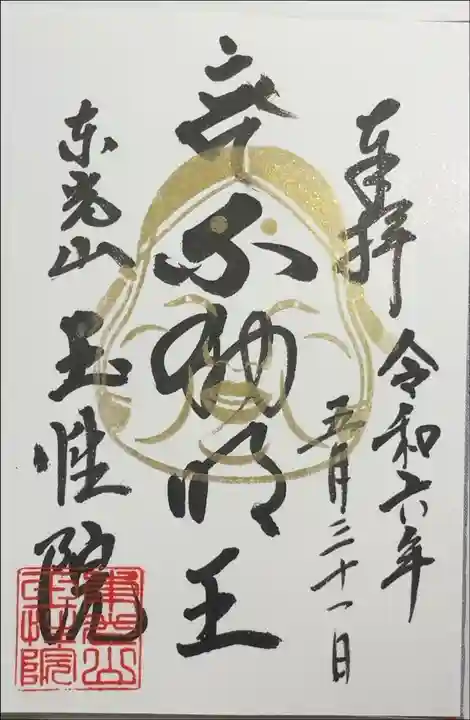 奉拝
令和六年
五月三十一日
不動明王
東光山
玉性院
東光山
玉性院